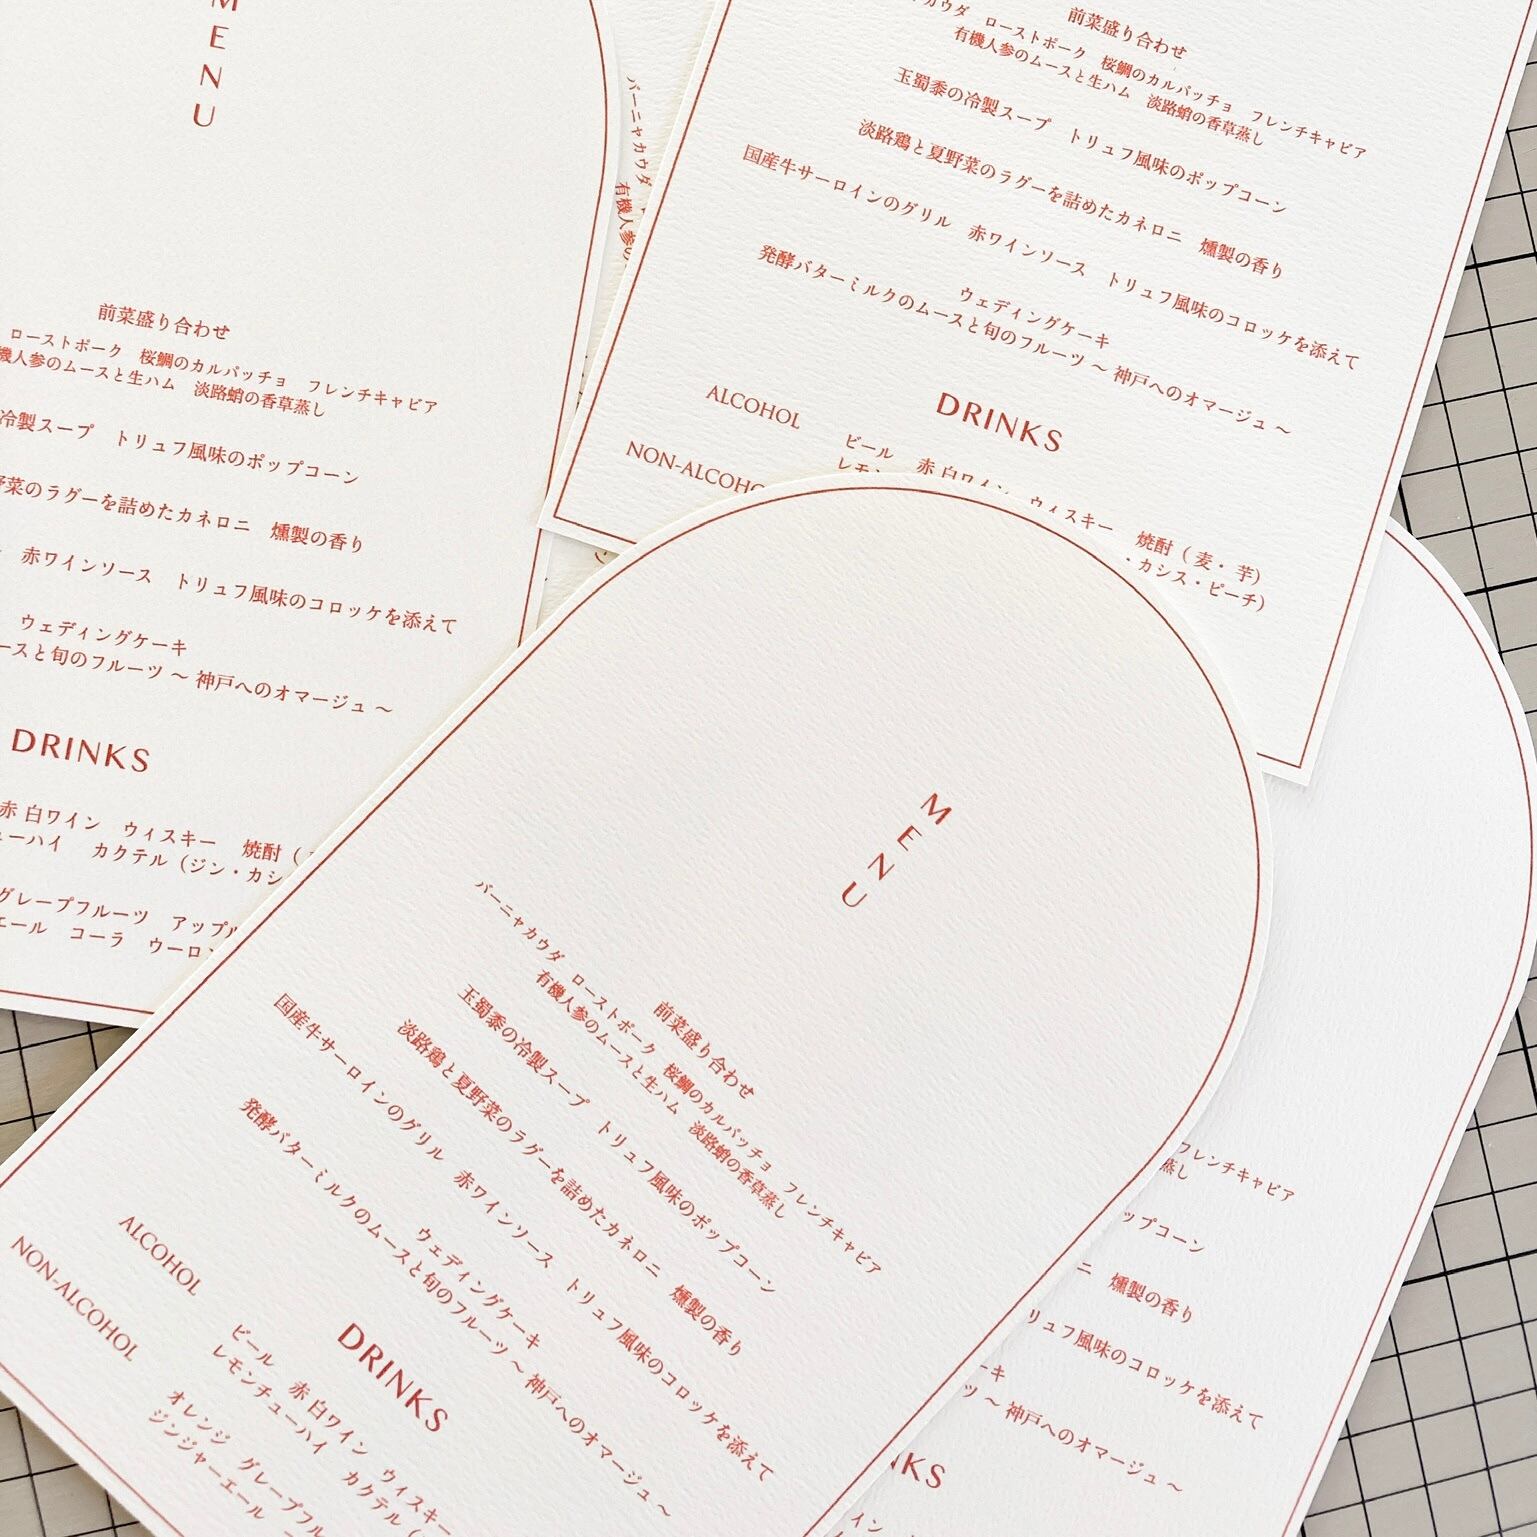 MENU
前菜盛り合わせ
ローストポーク 桜鯛のカルパッチョ フレンチキャビア
機人参のムースと生ハム 淡路蛸の香草蒸し
冷製スープ トリュフ風味のポップコーン
野菜のラグーを詰めたカネロニ 燻製の香り
赤ワインソース トリュフ風味のコロッケを添えて
ウェディングケーキ
ースと旬のフルーツ ~ 神戸へのオマージュ ~
DRINKS
赤 白ワイン ウィスキー 焼酎 (
ューハイ カクテル (ジン・カシ
グレープフルーツ アップル
エール コーラ ウーロン
バーニャカウダ
有機人参の
カウダ ローストポーク 桜鯛のカルパッチョ フレンチキャビア
前菜盛り合わせ
有機人参のムースと生ハム 淡路蛸の香草蒸し
玉蜀黍の冷製スープ トリュフ風味のポップコーン
淡路鶏と夏野菜のラグーを詰めたカネロニ 燻製の香り
国産牛サーロインのグリル 赤ワインソース トリュフ風味のコロッケを添えて
ウェディングケーキ
発酵バターミルクのムースと旬のフルーツ ~ 神戸へのオマージュ ~
DRINKS
ALCOHOL
ビール 赤 白ワイン ウィスキー 焼酎 ( 麦・ 芋)
レモン
・カシス・ピーチ)
NON-ALCOHO
MENU
前菜盛り合わせ
バーニャカウダ ローストポーク 桜鯛のカルパッチョ フレンチキャビア
有機人参のムースと生ハム 淡路蛸の香草蒸し
玉蜀黍の冷製スープ トリュフ風味のポップコーン
淡路鶏と夏野菜のラグーを詰めたカネロニ 燻製の香り
国産牛サーロインのグリル 赤ワインソース トリュフ風味のコロッケを添えて
ウェディングケーキ
発酵バターミルクのムースと旬のフルーツ ~ 神戸へのオマージュ ~
DRINKS
ALCOHOL
ビール 赤 白ワイン ウィスキー
レモンチューハイ カクテル (
NON-ALCOHOL
オレンジ グレープフル
ジンジャーエール
フレンチキャビア
蒸し
ップコーン
ニ 燻製の香り
リュフ風味のコロッケを添えて
ーキ
ツ ~ 神戸へのオマージュ ~
NKS
イン